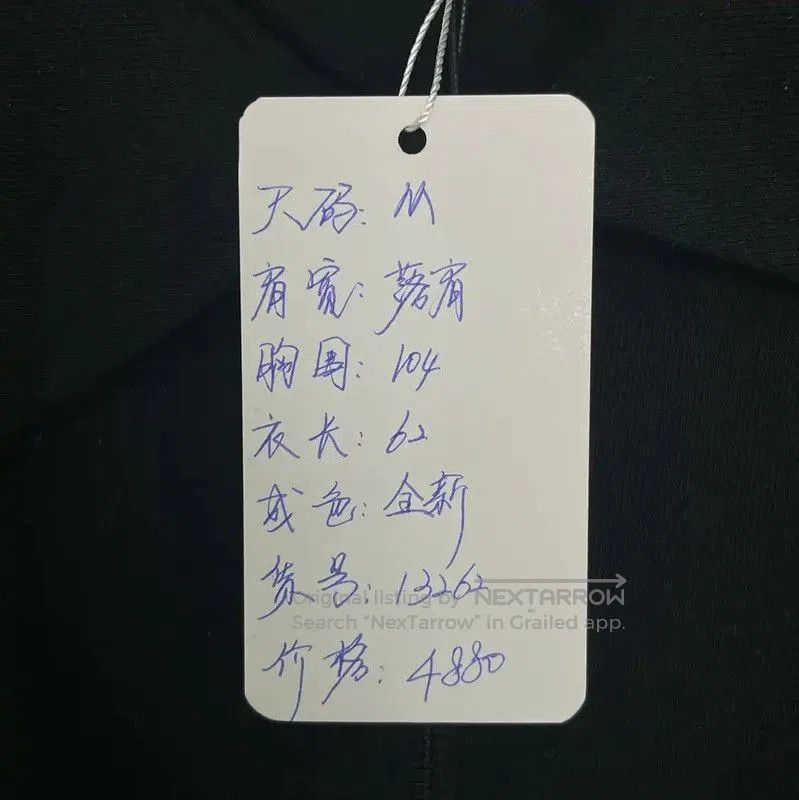 尺码: M
肩宽: 落肩
胸围: 104
衣长: 62
成色: 全新
货号: 13262
Original listing by NEXTARROW
Search "NexTarrow" in Grailed app.
价格: 4880